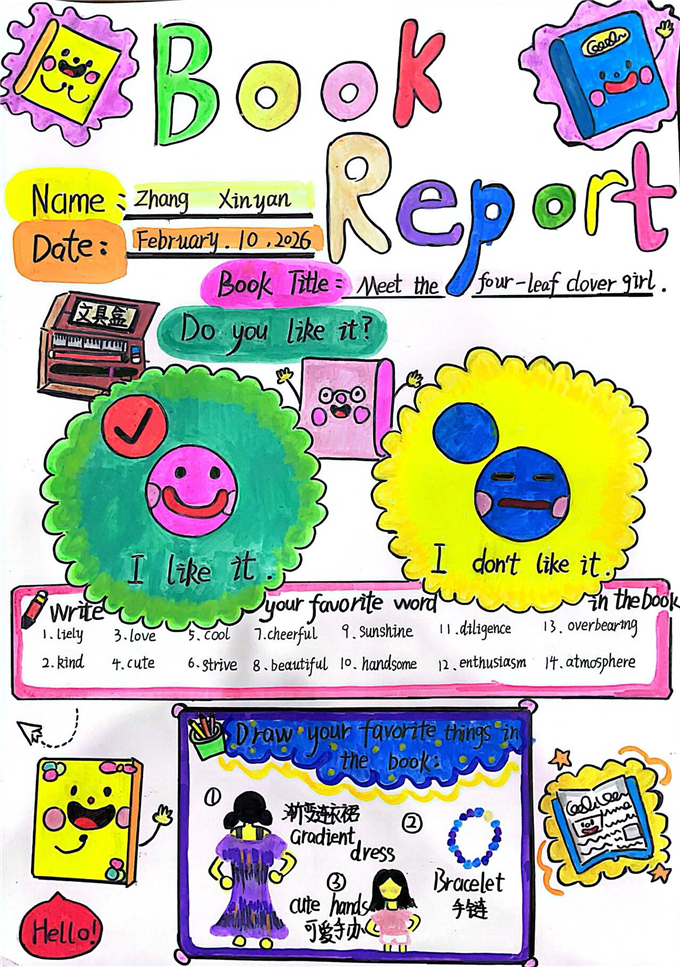 Book
Report
Name: Zhang Xinyan
Date: February.10,2026
Book Title: Meet the four-leaf clover girl.
文具盒
Do you like it?
I like it.
I don't like it.
Write your favorite word in the book
1.liely 3.love 5.cool 7.cheerful 9.sunshine 11.diligence 13.overbearing
2.kind 4.cute 6.strive 8.beautiful 10.handsome 12.enthusiasm 14.atmosphere
Draw your favorite things in
the book:
① 渐变连衣裙
Gradient
dress
②
Bracelet
手链
③
cute hands
可爱手办
Hello!